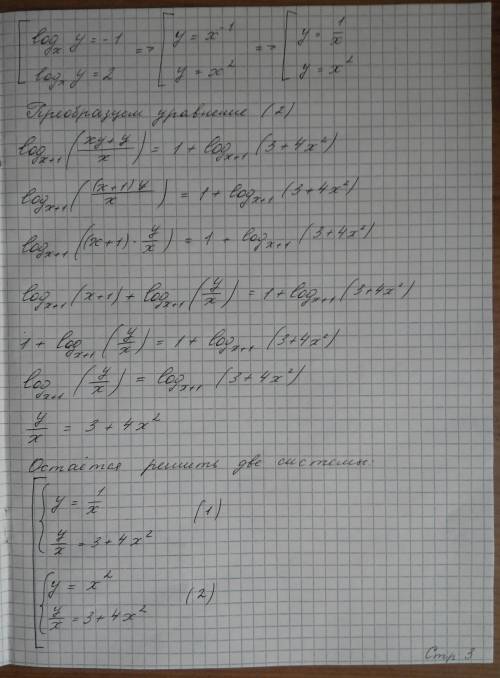 [ log_x y = -1 => [ y = x^-1 => [ y = 1/x
[ log_x y = 2 [ y = x^2 [ y = x^2
Преобразуем уравнение (2)
log_{x+1} ( (xy+y)/x ) = 1 + log_{x+1} (3+4x^2)
log_{x+1} ( ((x+1)y)/x ) = 1 + log_{x+1} (3+4x^2)
log_{x+1} ( (x+1) · y/x ) = 1 + log_{x+1} (3+4x^2)
log_{x+1} (x+1) + log_{x+1} ( y/x ) = 1 + log_{x+1} (3+4x^2)
1 + log_{x+1} ( y/x ) = 1 + log_{x+1} (3+4x^2)
log_{x+1} ( y/x ) = log_{x+1} (3+4x^2)
y/x = 3 + 4x^2
Остаётся решить две системы:
y = 1/x
(1)
y/x = 3+4x^2
y = x^2
(2)
y/x = 3+4x^2
Стр 3